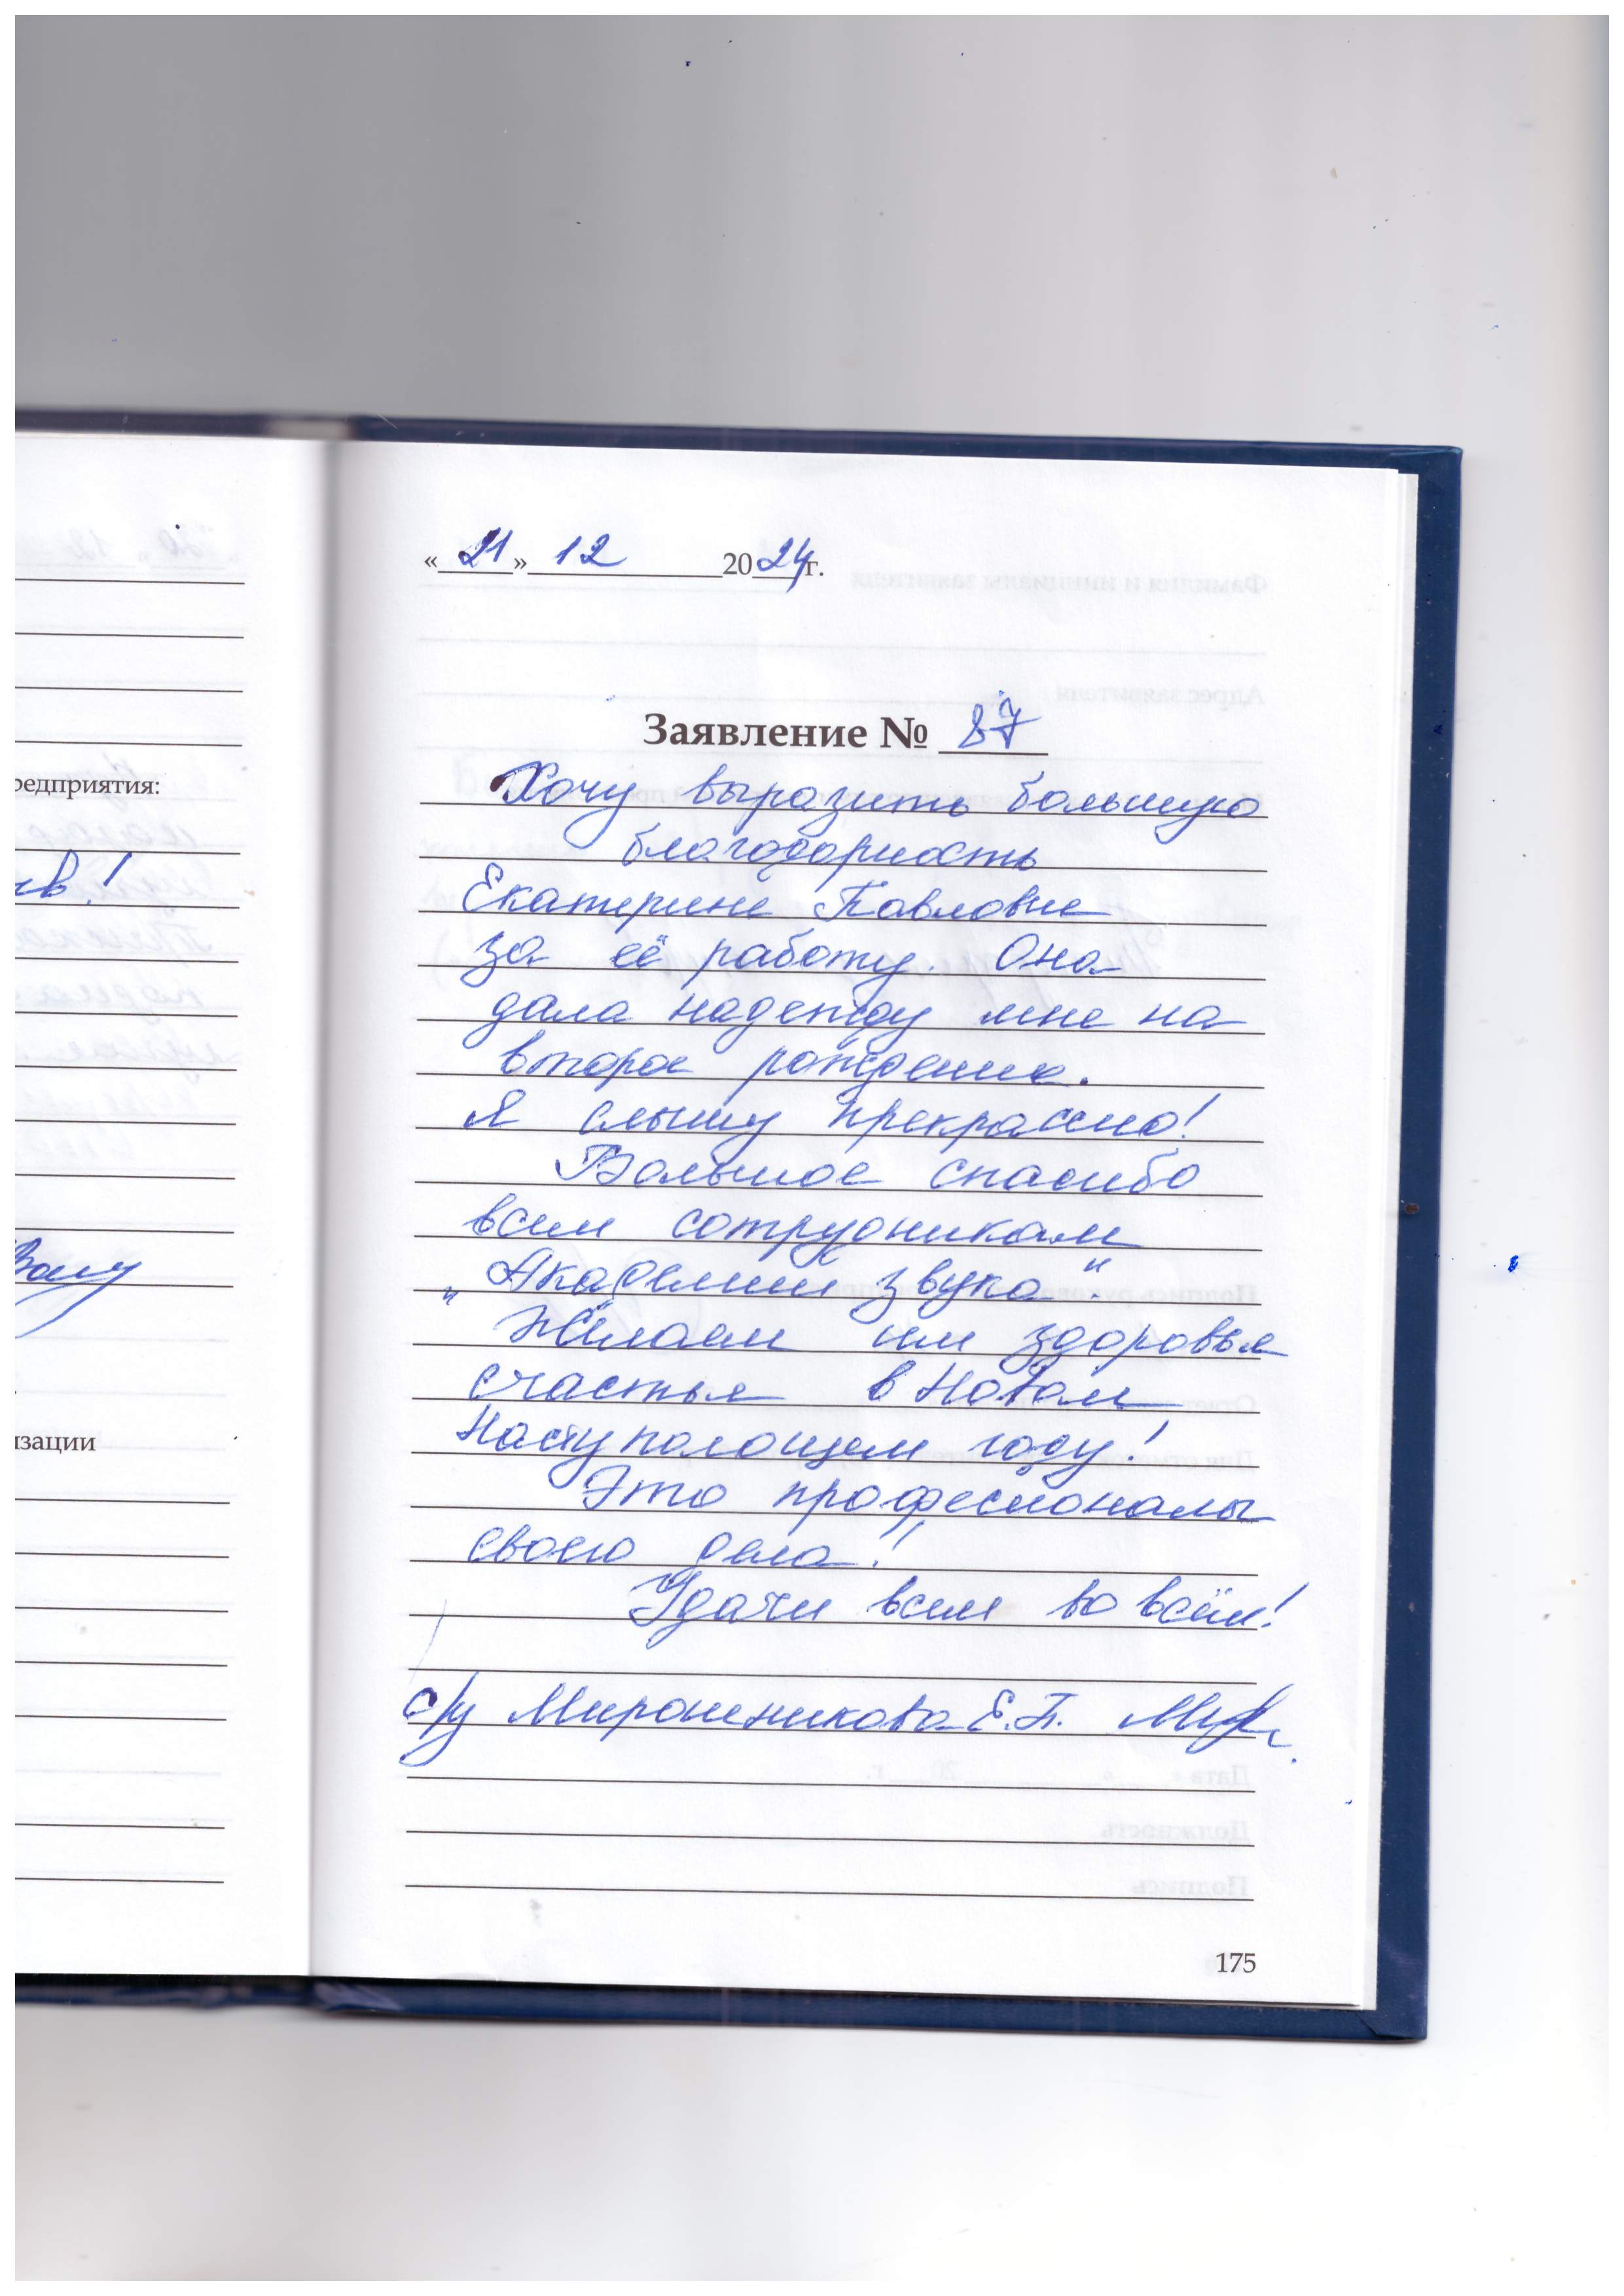 редприятия:
изации
«21» 12 2024г.
Заявление № 87
Хочу выразить большую
благодарность
Екатерине Павловне
за её работу. Она
дала надежду мне на
второе рождение.
Я слышу прекрасно!
Большое спасибо
всем сотрудникам
„Академии звука".
Желаем им здоровья
счастья в Новом
Наступающем году!
Это професионалы
своего дела!
Удачи всем во всём!
с/у Мирошникова Е.П.
175